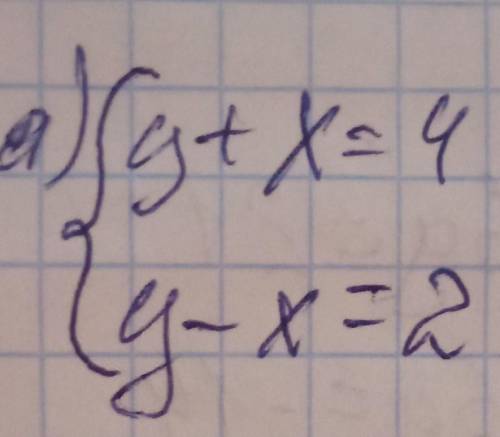 а) { y + x = 4
y - x = 2